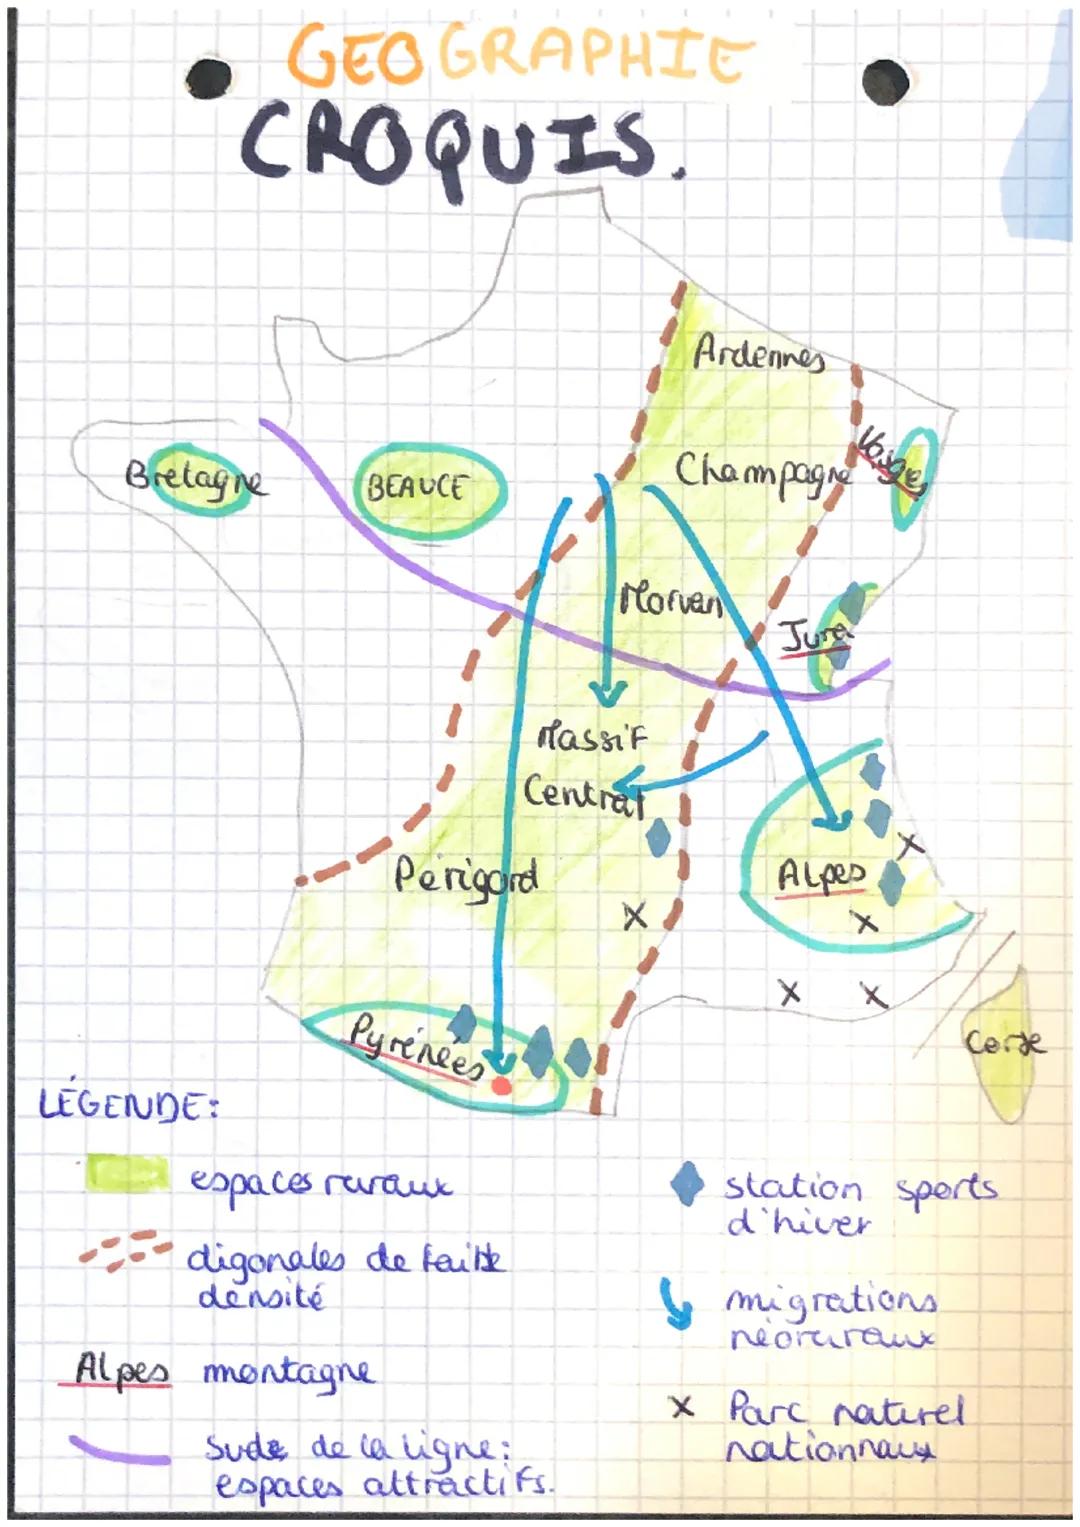 GEOGRAPHIE
CROQUIS.
Ardennes
Vosges
Champagne
Bretagne
BEAUCE
Morvan
Jura
Massif
Central
Périgord
Alpes
Pyrénées
Corse
LÉGENDE:
espaces ruraux
digonales de faible
densité
Alpes montagne
Sude de la ligne:
espaces attractifs.
station sports
d'hiver
migrations
néoruraux
X Parc naturel
nationnaux